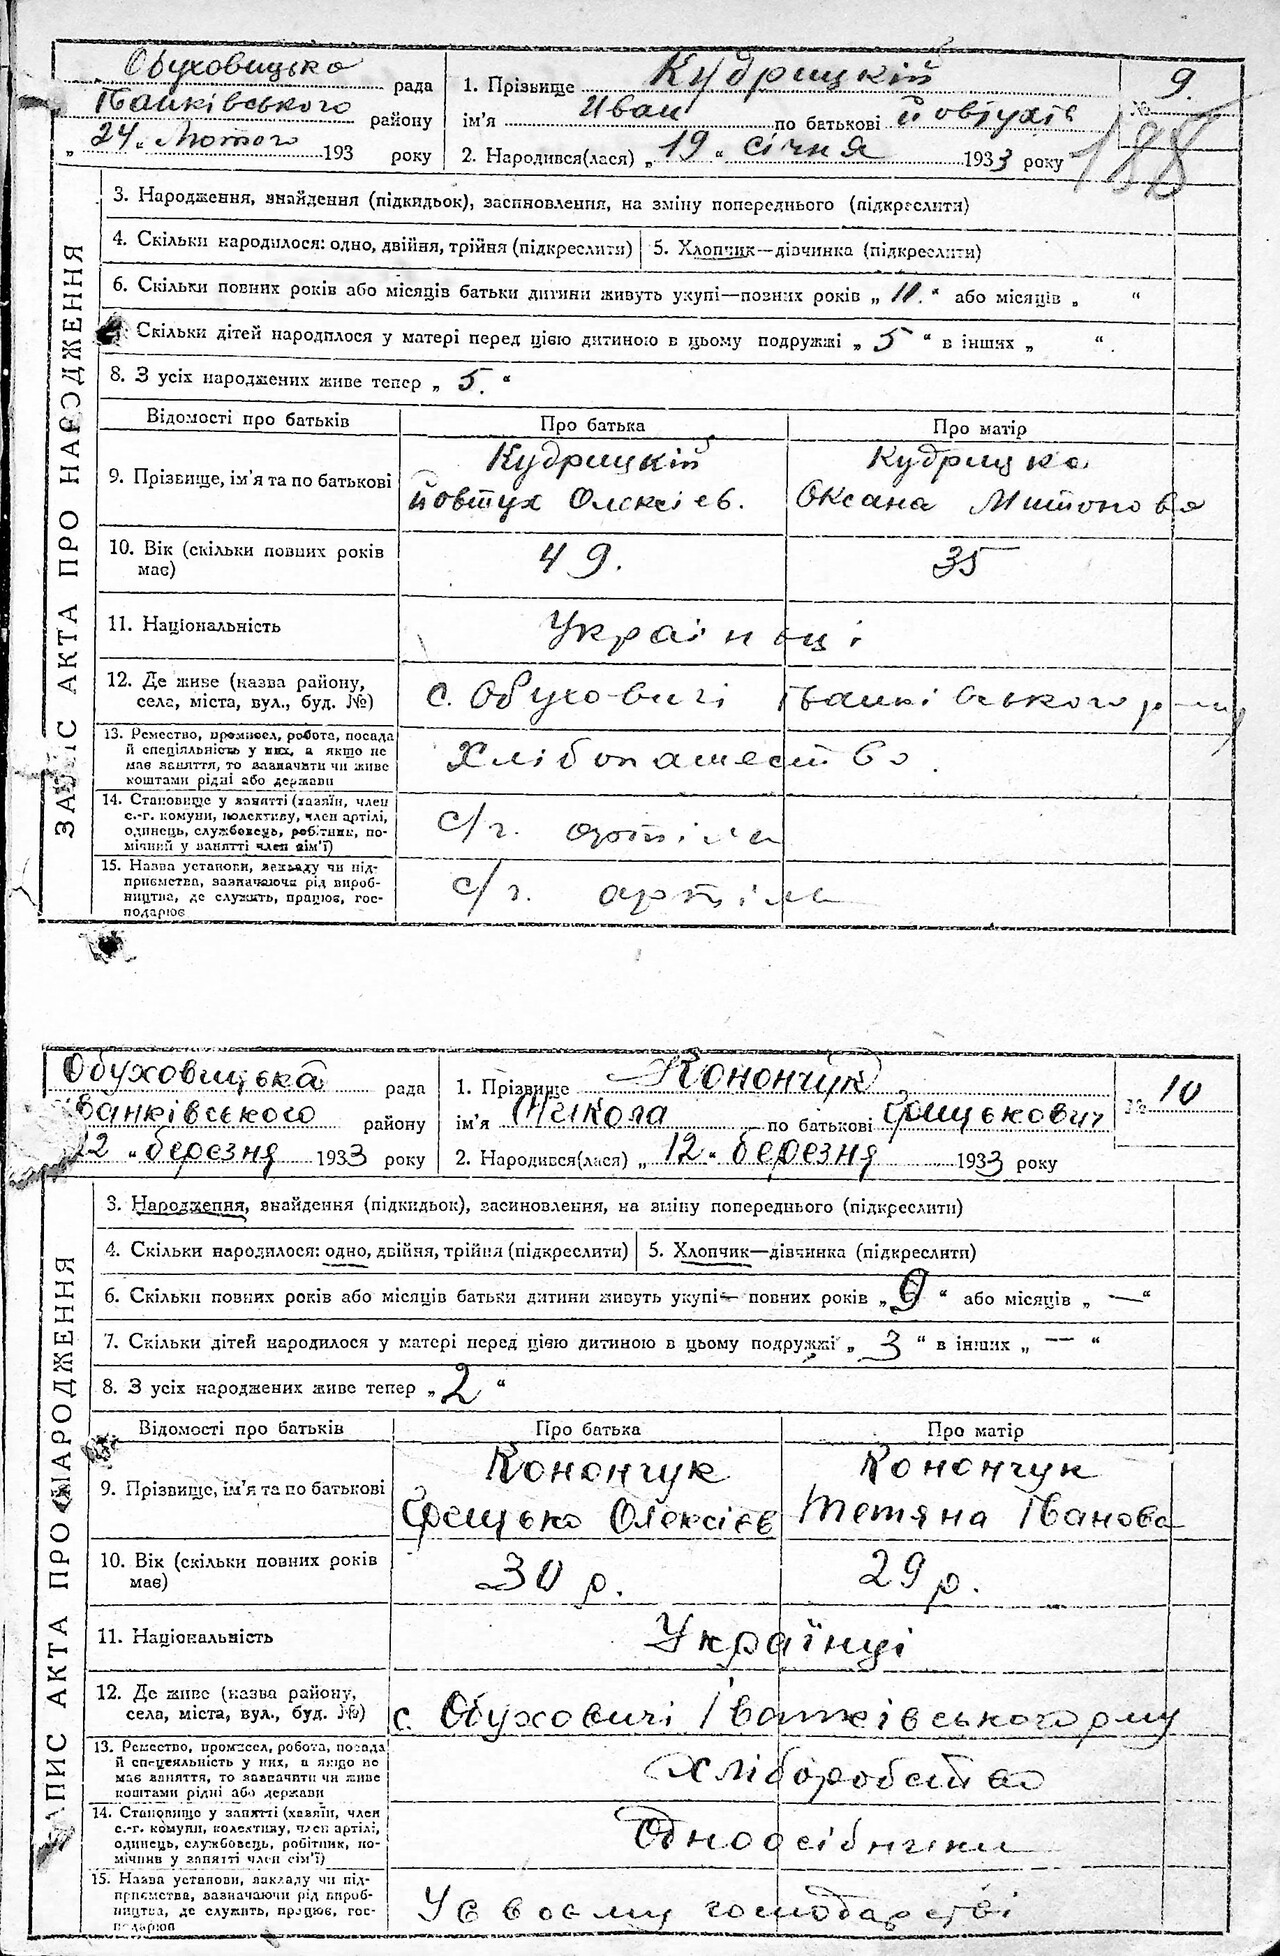 Обуховицька рада
Іванківського району
„24“ Лютого 193 року
1. Прізвище Кудрицкій
ім'я Иван по батькові Йовтухів
2. Народився(лася) „19“ січня 1933 року
№ 9.
188
ЗАПИС АКТА ПРО НАРОДЖЕННЯ
3. Народження, знайдення (підкидьок), засиновлення, на зміну попереднього (підкреслити)
4. Скільки народилося: одно, двійня, трійня (підкреслити) 5. Хлопчик—дівчинка (підкреслити)
6. Скільки повних років або місяців батьки дитини живуть укупі—повних років „11.“ або місяців „ “
Скільки дітей народилося у матері перед цією дитиною в цьому подружжі „5“ в інших „ “.
8. З усіх народжених живе тепер „5.“
Відомості про батьків Про батька Про матір
9. Прізвище, ім'я та по батькові
Кудрицкій
Йовтух Олексієв.
Кудрицка
Оксана Митонова
10. Вік (скільки повних років
має)
49. 35
11. Національність Українці
12. Де живе (назва району,
села, міста, вул., буд. №)
с. Обуховичі Іванківського р-ну
13. Ремество, промисел, робота, посада
й спеціяльність у них, а якщо не
має заняття, то зазначити чи живе
коштами рідні або держави
Хлібопашество.
14. Становище у занятті (хазяїн, член
с.-г. комуни, колективу, член артілі,
одинець, службовець, робітник, по-
мічний у занятті член сім'ї)
с/г. артіли
15. Назва установи, закладу чи під-
приємства, зазначаючи рід вироб-
ництва, де служить, працює, гос-
подарює
с/г. артіли
Обуховицька рада
Іванківського району
12 „березня 1933 року
1. Прізвище Конончук
ім'я Микола по батькові Грицькович
2. Народився(лася) „12“ березня 1933 року
№ 10
ЗАПИС АКТА ПРО НАРОДЖЕННЯ
3. Народження, знайдення (підкидьок), засиновлення, на зміну попереднього (підкреслити)
4. Скільки народилося: одно, двійня, трійня (підкреслити) 5. Хлопчик—дівчинка (підкреслити)
6. Скільки повних років або місяців батьки дитини живуть укупі— повних років „9“ або місяців „—“
7. Скільки дітей народилося у матері перед цією дитиною в цьому подружжі „3“ в інших „—“
8. З усіх народжених живе тепер „2“
Відомості про батьків Про батька Про матір
9. Прізвище, ім'я та по батькові
Конончук
Грицько Олексієв
Конончук
Тетяна Іванова
10. Вік (скільки повних років
має)
30 р. 29 р.
11. Національність Українці
12. Де живе (назва району,
села, міста, вул., буд. №)
с. Обуховичі Іванківського р-ну
13. Ремество, промисел, робота, посада
й спецеяльність у них, а якщо не
має заняття, то зазначити чи живе
коштами рідні або держави
Хліборобство
14. Становище у занятті (хазяїн, член
с.-г. комуни, колективу, член артілі,
одинець, службовець, робітник, по-
мічник у занятті член сім'ї)
Одноосібники
15. Назва установи, закладу чи під-
приємства, зазначаючи рід вироб-
ництва, де служить, працює, гос-
подарює
У своєму господарстві